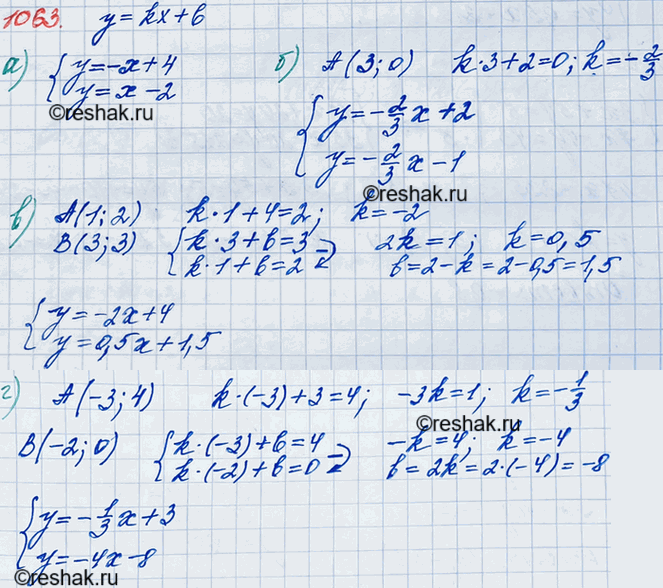 1063. y = kx + b
а) { y = -x + 4
y = x - 2
б) A(3; 0) k·3 + 2 = 0; k = -2/3
{ y = -2/3 x + 2
y = -2/3 x - 1
©reshak.ru
©reshak.ru
в) A(1; 2) k·1 + 4 = 2; k = -2
B(3; 3) { k·3 + b = 3 2k = 1; k = 0,5
k·1 + b = 2 ⇒ b = 2 - k = 2 - 0,5 = 1,5
{ y = -2x + 4
y = 0,5x + 1,5
г) A(-3; 4) k·(-3) + 3 = 4; -3k = 1; k = -1/3
©reshak.ru
B(-2; 0) { k·(-3) + b = 4 -k = 4; k = -4
k·(-2) + b = 0 ⇒ b = 2k = 2·(-4) = -8
{ y = -1/3 x + 3
y = -4x - 8
©reshak.ru